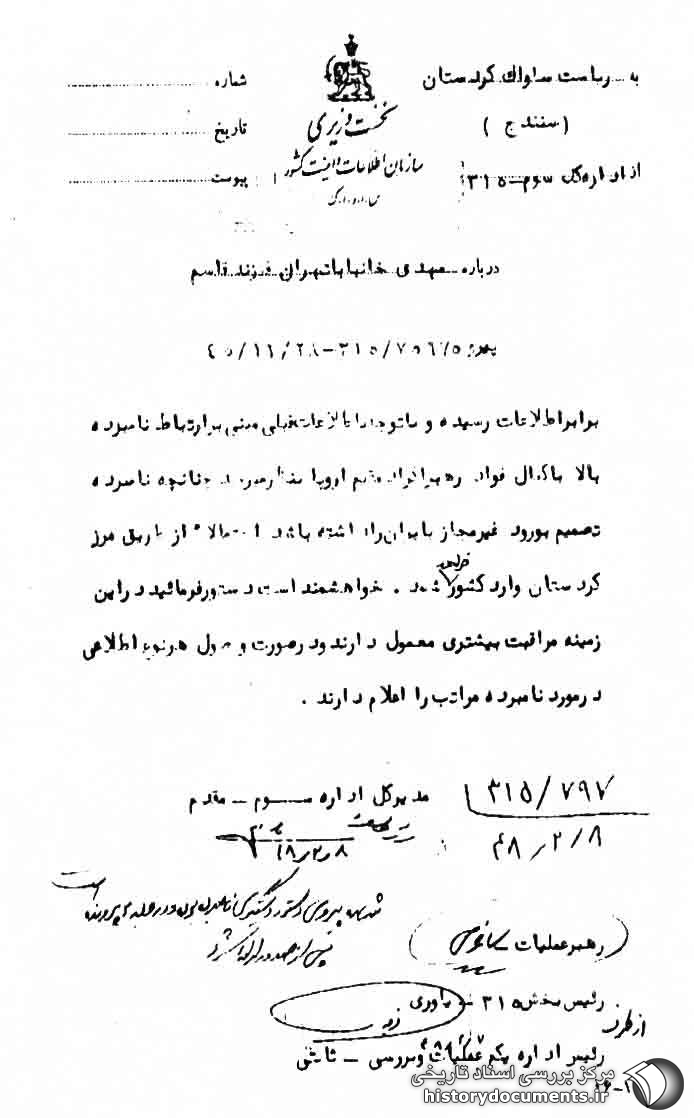 به ریاست ساواک کردستان
( سنندج )
از اداره کل سوم - ۳۱۵
نخست وزیری
سازمان اطلاعات و امنیت کشور
شماره
تاریخ
پیوست
درباره مهدی خانبابا تهرانی فرزند قاسم
۴۵/۱۱/۲۸-۳۱۵/
برابر اطلاعات رسیده و با توجه به اطلاعات قبلی مبنی بر ارتباط نامبرده
بالا با کمال فواد رهبر اکراد مقیم اروپا چنانچه نامبرده
تصمیم بورود غیرمجاز بایران را داشته باشد احتمالا از طریق مرز
کردستان وارد کشور خواهد شد . خواهشمند است دستور فرمائید در این
زمینه مراقبت بیشتری معمول دارند و در صورت وصول هر نوع اطلاعی
در مورد نامبرده مراتب را اعلام دارند .
مدیر کل اداره سوم - مقدم
۳۱۵/۷۹۷
۴۸/۲/۸
رهبر عملیات
رئیس بخش ۳۱۵ یاوری
از طرف
رئیس اداره یکم عملیات و بررسی - ثابتی
مرکز بررسی اسناد تاریخی
historydocuments.ir